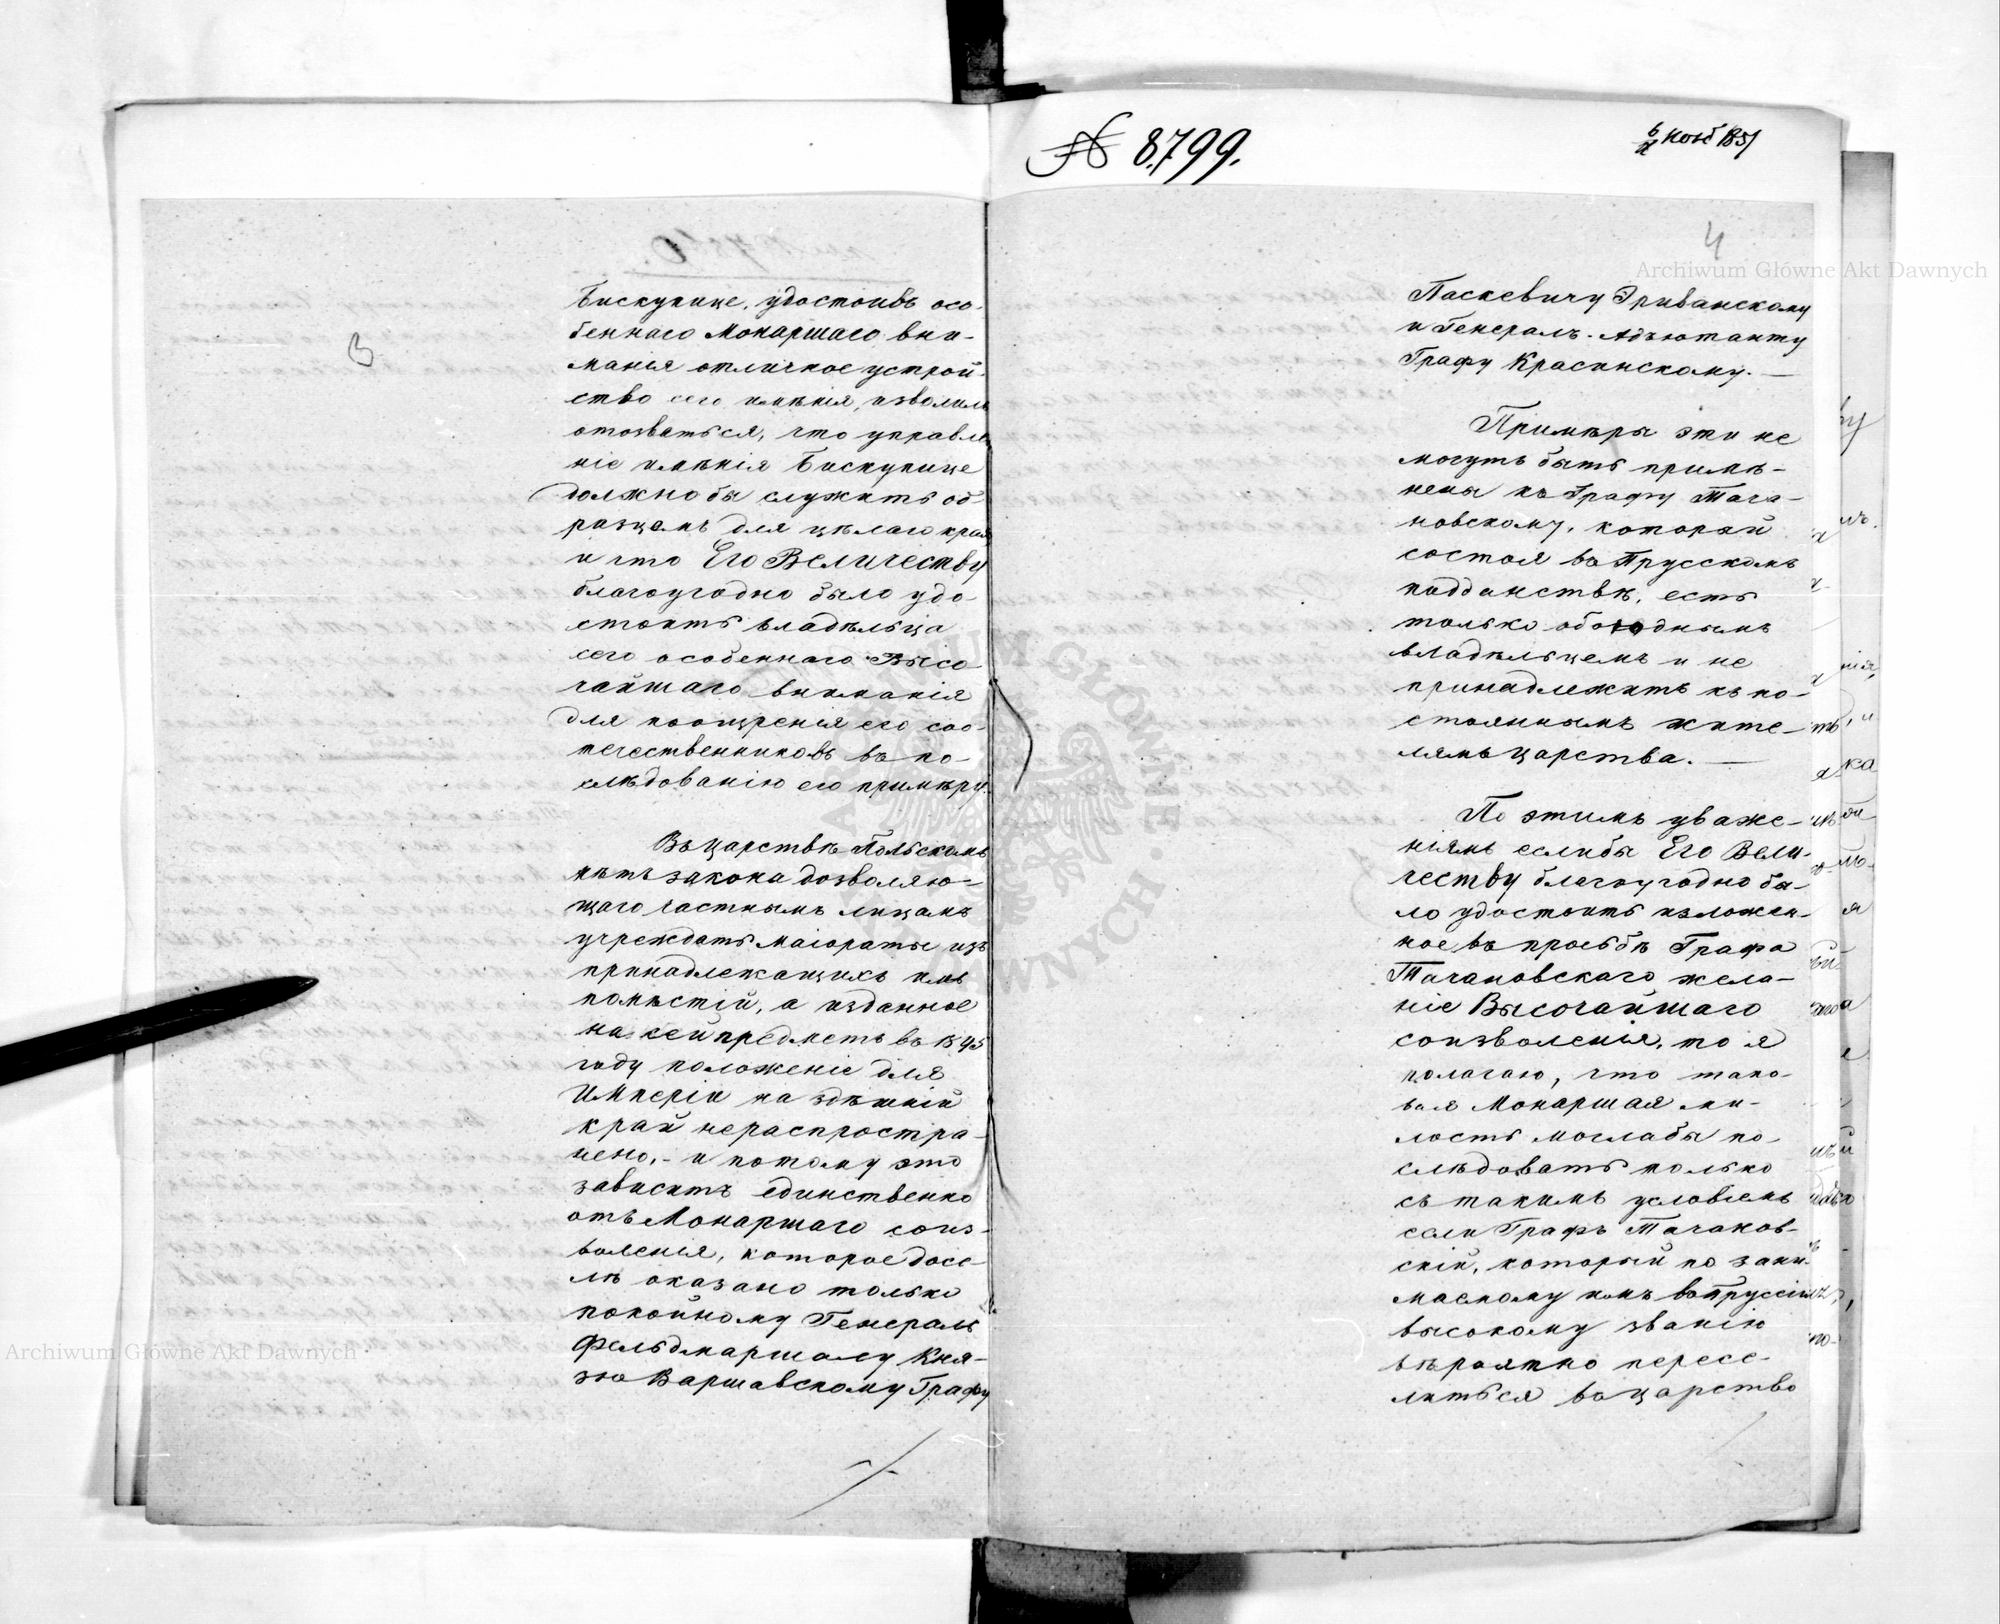 Бискупице, удостоивъ осо-
беннаго Монаршаго вни-
манія отличное устрой-
ство сего имѣнія, изволилъ
отозваться, что управле
ніе имѣнія Бискупице
должно бы служить об
разцемъ для цѣлаго края
и что Его Величеству
благоугодно было удо
стоить владѣльца
сего особеннаго Высо
чайшаго вниманія
для поощренія его соо-
течественниковъ въ по-
слѣдованію его примѣру.
Въ Царствѣ Польскомъ
нѣтъ закона дозволяю-
щаго частнымъ лицамъ
учреждать маіораты изъ
принадлежащихъ имъ
помѣстій, а изданное
на сей предметъ въ 1845
году положеніе для
Имперіи на здѣшній
край нераспростра-
нено, - и потому это
зависитъ единственно
отъ Монаршаго соиз-
воленія, которое досе-
лѣ оказано только
покойному Генералъ
Фельдмаршалу Кня-
зю Варшавскому Графу
№ 8799.
Нояб 1857
4
Паскевичу Эриванскому
и Генералъ-Адъютанту
Графу Красинскому. —
Примѣры эти не
могутъ быть примѣ-
нены къ Графу Тача-
новскому, который
состоя въ Прусскомъ
подданствѣ, есть
только обоюднымъ
владѣльцемъ и не
принадлежитъ къ по-
стояннымъ жите-
лямъ Царства. —
По этимъ уваже-
ніямъ еслибы Его Вели-
честву благоугодно бы-
ло удостоить изложен-
ное въ просьбѣ Графа
Тачановскаго жела-
ніе Высочайшаго
соизволенія, то я
полагаю, что тако-
вая Монаршая ми-
лость моглабы по-
слѣдовать только
съ такимъ условіемъ
если Графъ Тачанов-
скій, который по зани-
маемому имъ въ Пруссіи
высокому званію
вѣроятно пересе-
литься въ Царство
Archiwum Główne Akt Dawnych
Archiwum Główne Akt Dawnych